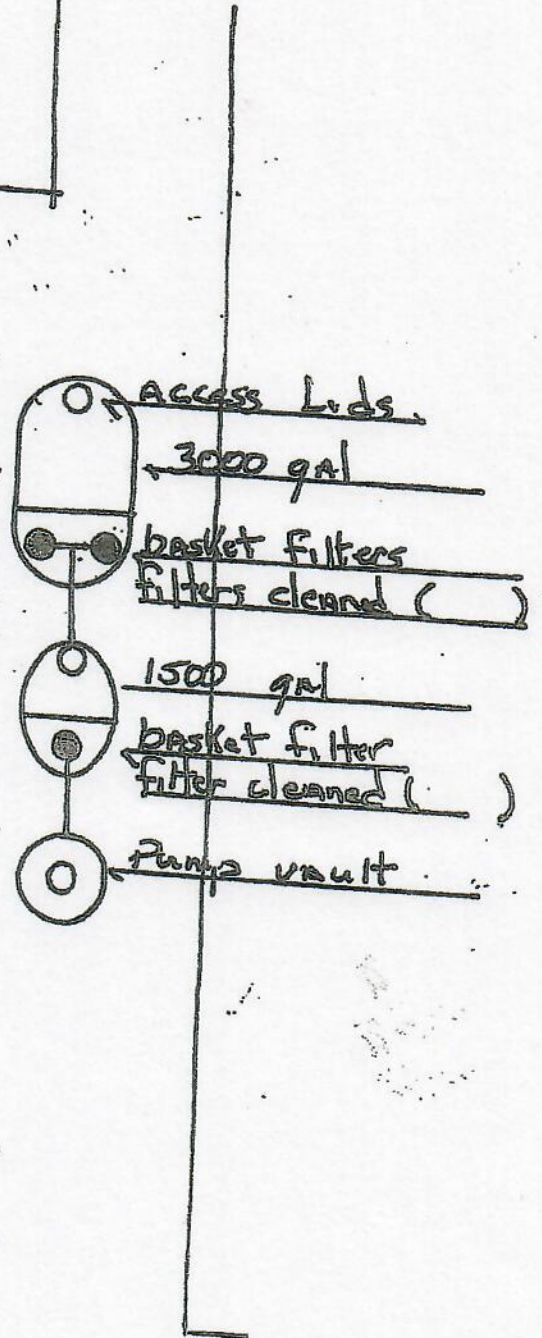 Access Lids
3000 gal
basket filters
filters cleaned (   )
1500 gal
basket filter
filter cleaned (   )
Pump vault